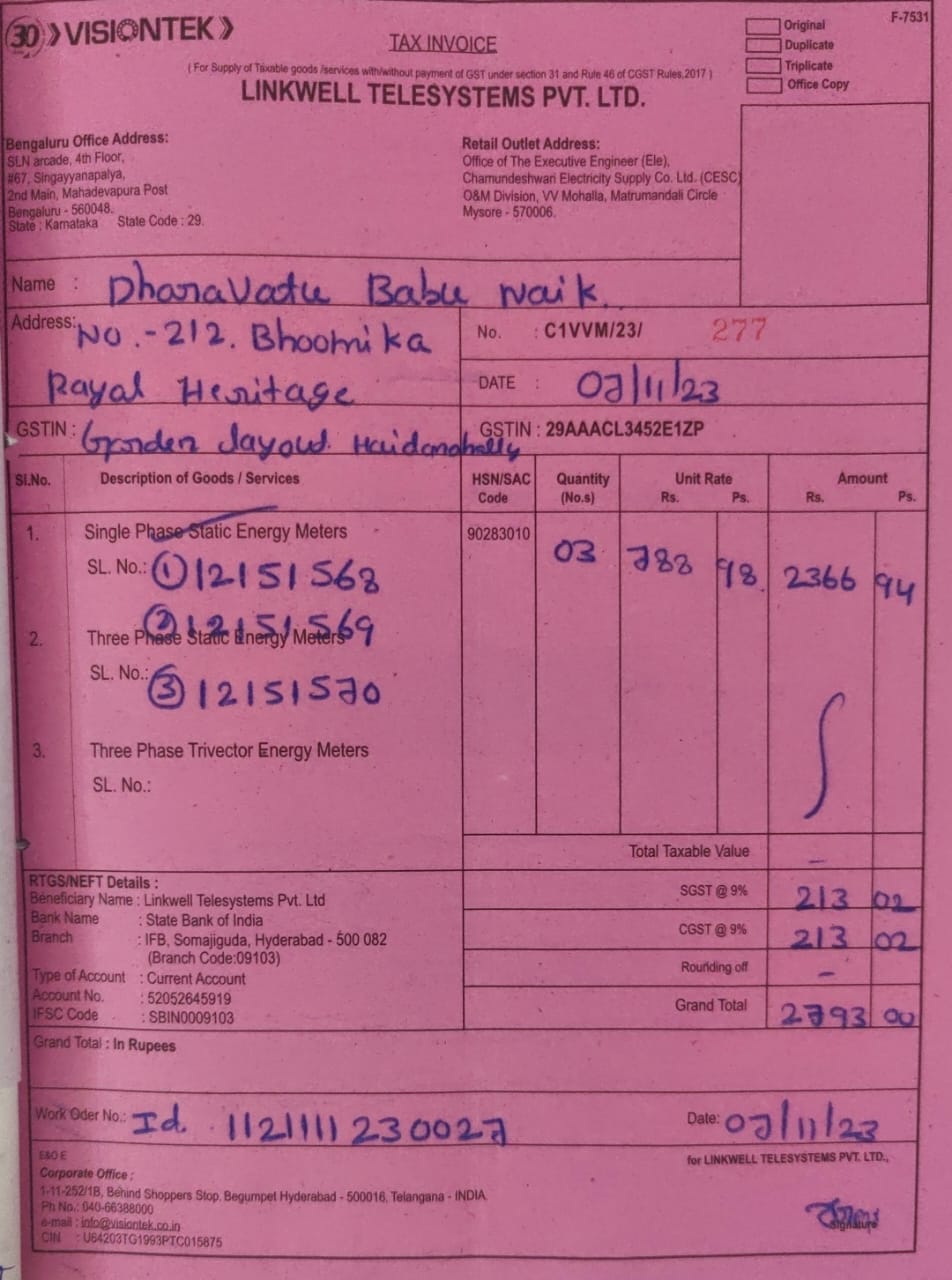 30 VISIONTEK
TAX INVOICE
F-7531
Original
Duplicate
Triplicate
Office Copy
( For Supply of Taxable goods /services with/without payment of GST under section 31 and Rule 46 of CGST Rules,2017 )
LINKWELL TELESYSTEMS PVT. LTD.
Bengaluru Office Address:
SLN arcade, 4th Floor,
#67, Singayyanapalya,
2nd Main, Mahadevapura Post
Bengaluru - 560048.
State : Karnataka State Code : 29.
Retail Outlet Address:
Office of The Executive Engineer (Ele),
Chamundeshwari Electricity Supply Co. Ltd. (CESC)
O&M Division, VV Mohalla, Matrumandali Circle
Mysore - 570006.
Name : Dharavatu Babu Naik.
Address: No.-212. Bhoomika
Rayal Heritage
GSTIN : Gorden Layout. Haidanahally
No. : C1VVM/23/ 277
DATE : 07/11/23
GSTIN : 29AAACL3452E1ZP
Sl.No. Description of Goods / Services HSN/SAC Code Quantity (No.s) Unit Rate Rs. Ps. Amount Rs. Ps.
1. Single Phase Static Energy Meters 90283010 03 788 98. 2366 94
SL. No.: ① 12151568
② 12151569
2. Three Phase Static Energy Meters
SL. No.: ③ 12151570
3. Three Phase Trivector Energy Meters
SL. No.:
Total Taxable Value -
SGST @ 9% 213 02
CGST @ 9% 213 02
Rounding off -
Grand Total 2793 00
RTGS/NEFT Details :
Beneficiary Name : Linkwell Telesystems Pvt. Ltd
Bank Name : State Bank of India
Branch : IFB, Somajiguda, Hyderabad - 500 082
(Branch Code:09103)
Type of Account : Current Account
Account No. : 52052645919
IFSC Code : SBIN0009103
Grand Total : In Rupees
Work Oder No.: Id. 1121111230027
Date: 07/11/23
E&O E
Corporate Office :
1-11-252/1B, Behind Shoppers Stop, Begumpet Hyderabad - 500016, Telangana - INDIA.
Ph No.: 040-66388000
e-mail : info@visiontek.co.in
CIN : U64203TG1993PTC015875
for LINKWELL TELESYSTEMS PVT. LTD.,
Signature